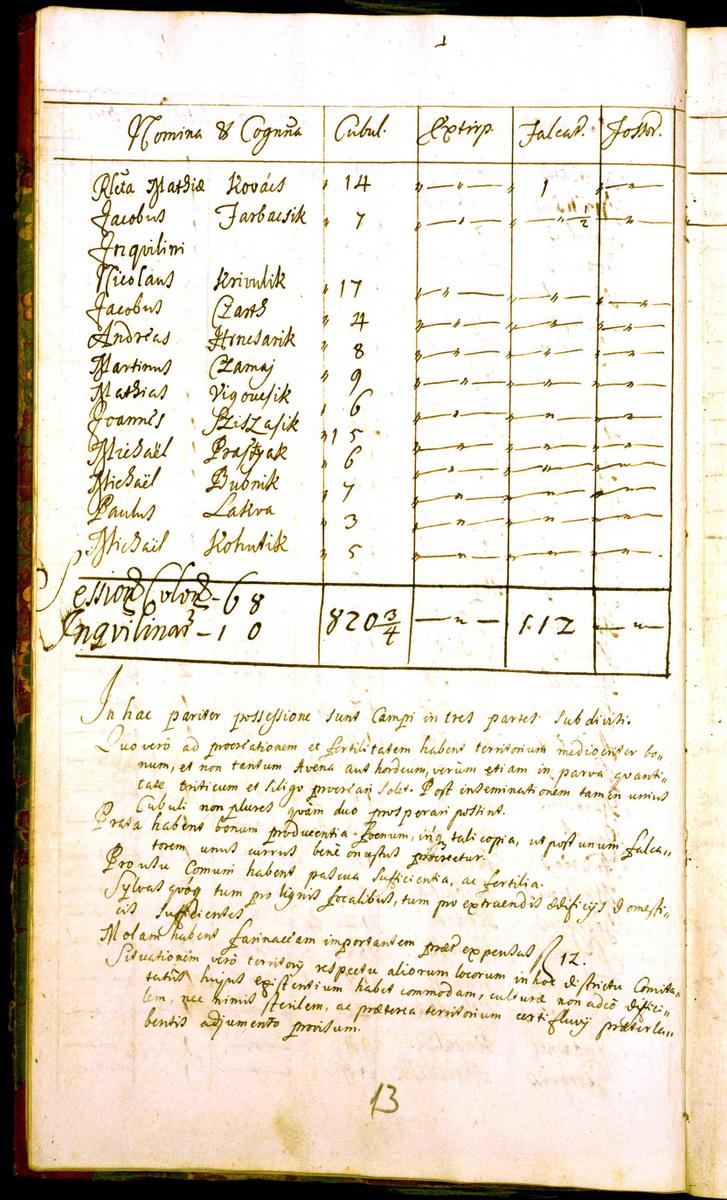 1
Nomina & Cognna Cubul. Extirp. Falcat. Fossor.
Rlcta Mathiæ Kovács " 14 — " — " 1 " — " —
Jacobus Farbacsik " 7 — " — " — " 1/2 " — " —
Inquilini
Nicolaus Krivulik " 17 — " — " — " — " — " —
Jacobus Czarth " 4 — " — " — " — " — " —
Andreas Hrncsarik " 8 — " — " — " — " — " —
Martinus Czamaj " 9 — " — " — " — " — " —
Mathias Vigovcsik " 6 — " — " — " — " — " —
Joannes Sziszasik " 15 — " — " — " — " — " —
Michaël " 6 — " — " — " — " — " —
Michaël Bubnik " 7 — " — " — " — " — " —
Paulus Lakva " 3 — " — " — " — " — " —
Michaël Kohutik " 5 — " — " — " — " — " —
Session Colon - 68 820 3/4 — " — 112 — " —
Inqvilinar - 10
In hac pariter possessione sunt Campi in tres partes subdivisi.
Quo verò ad procreationem et fertilitatem habent territorium mediocriter bo„
num, et non tantum Avena aut hordeum, verùm etiam in parva quanti„
tate triticum et siligo procreari solet. Post inseminationem tamen unius
Cubuli non plures quàm duo prosperari possint.
Prata habent bonum producentia foenum, inq tali copia, ut post unum falca„
torem unus currus benè onustus procreetur.
Pro usu Comuni habent pascua sufficientia, ac fertilia.
Sylvas quoq tum pro lignis focalibus, tum pro extruendis ædificijs domesti„
cis sufficientes
Molam habent farinaceam importantem præt expensas f 12.
Situationem verò territorij respectu aliorum locorum in hoc districtu Comita„
tûs hujus existentium habet commodam, culturæ non adeò diffici„
lem, nec nimis sterilem, ac præterea territorium certi fluvij præterla„
bentis adjumento provisum.
13